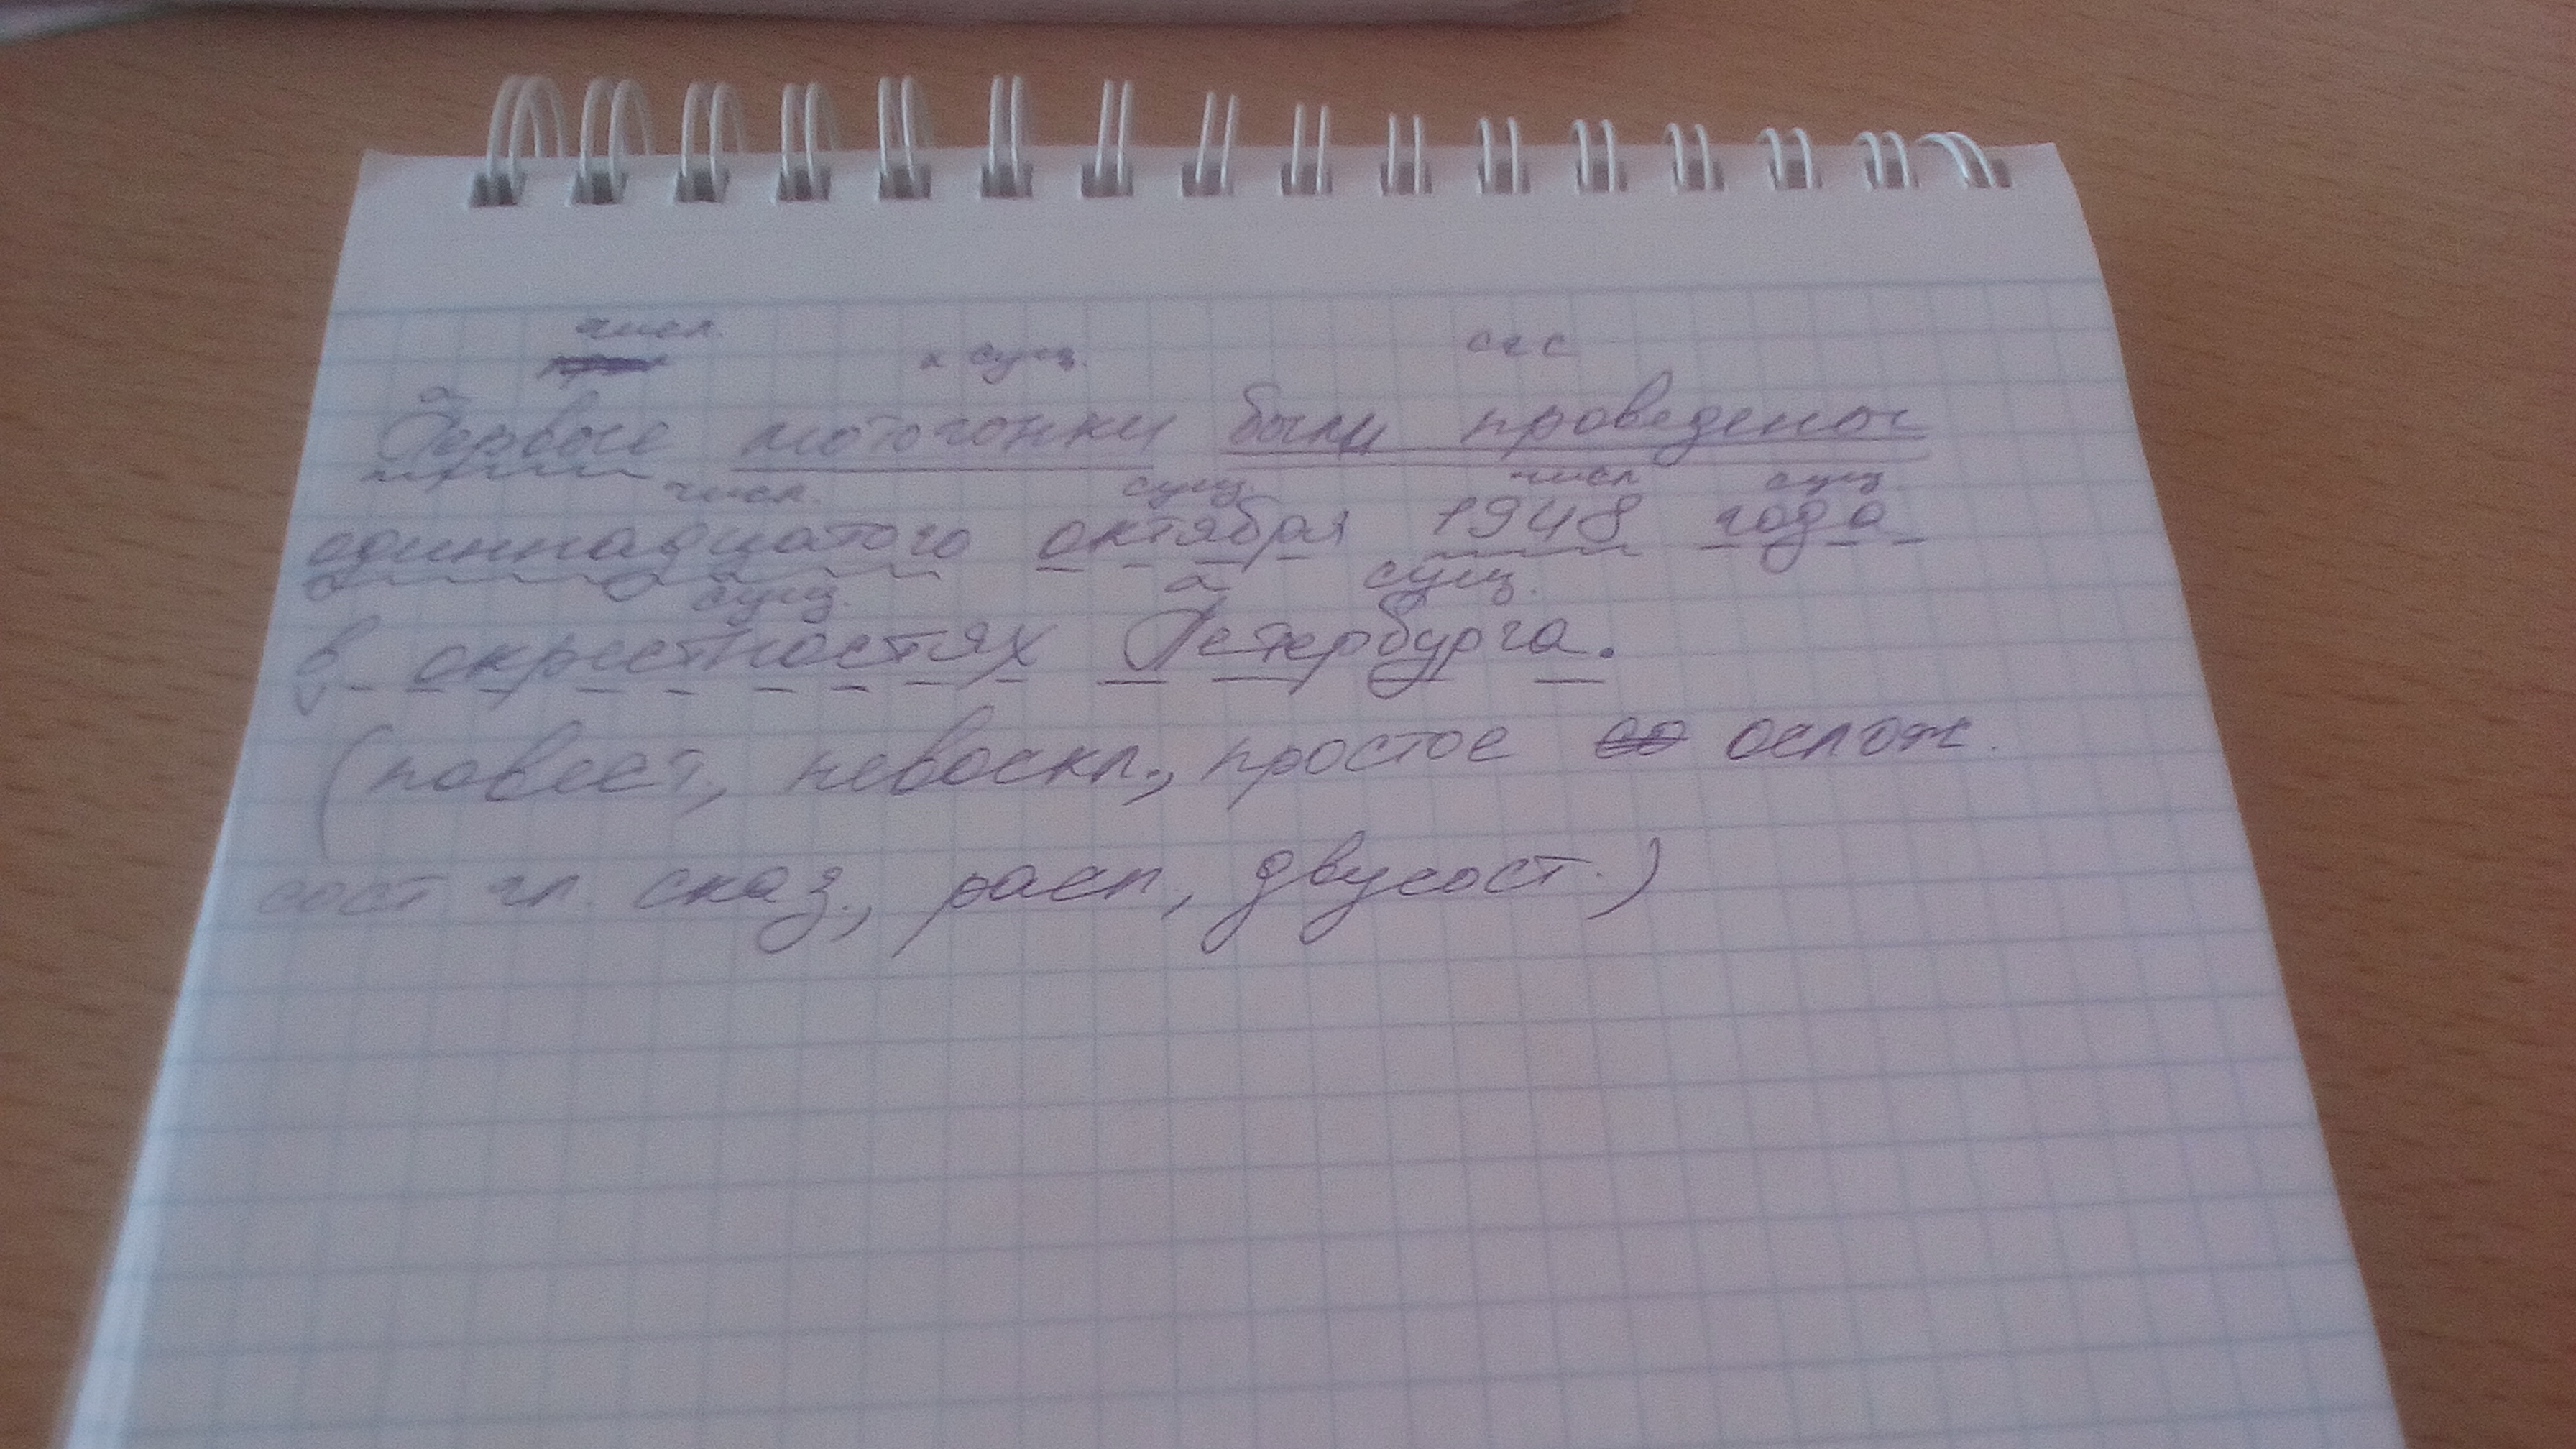 числ. сущ. сгс
Первые мотогонки были проведены
числ. сущ. числ сущ
одиннадцатого октября 1948 года
сущ. сущ.
в окрестностях Петербурга.
(повест, невоскл., простое ослож.
сост гл. сказ., расп, двусост.)